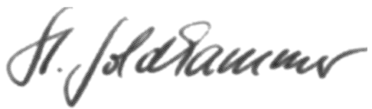 St. Goldhammer